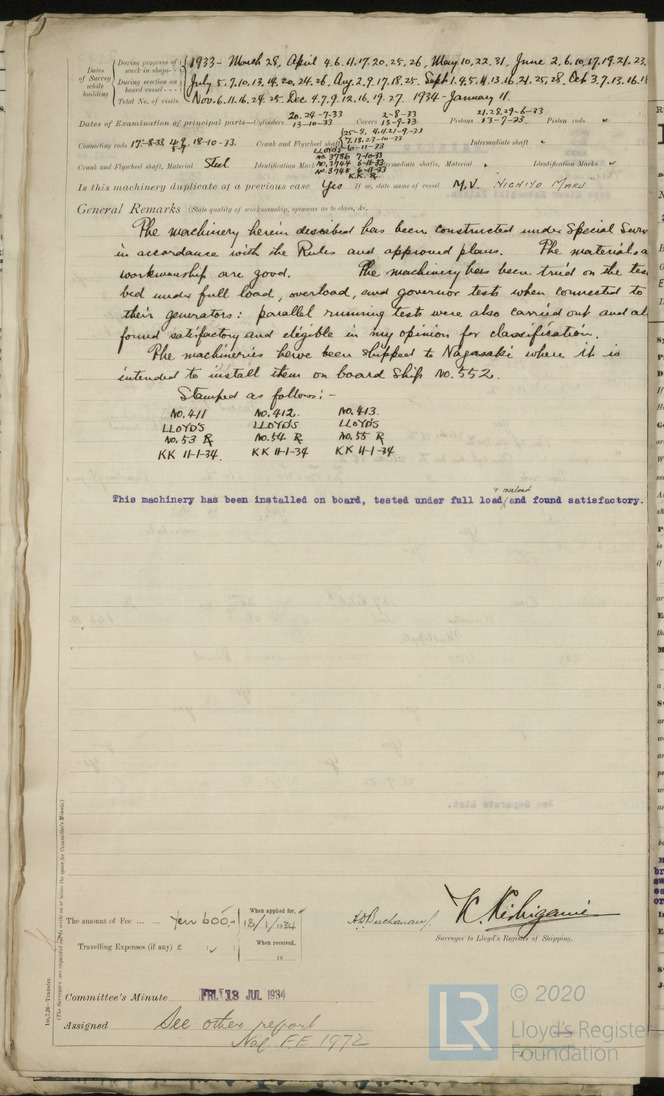 Dates of Survey while building
During progress of work in shops - - 1933 - March 28, April 4.6.11.17.20.25.26, May 10,22.31, June 2,6.10,17.19.21.23.
During erection on board vessel - - - July 5.7.10.13.14.20.24.26, Aug 2.9.17.18.25, Sept 1.4.5.11.13.16.21.25.28, Oct 3.7.13.16.18
Total No. of visits Nov. 6.11.16.24.25. Dec 4.7.9.12.16.19.27. 1934 - January 11.
Dates of Examination of principal parts—Cylinders 20.24-7-33 13-10-33 Covers 2-8-33 13-9-33 Pistons 21.28.29-6-33 13-7-33 Piston rods "
Connecting rods 17-8-33 18-10-33. Crank and Flywheel shaft 25-8. 4.11.21-9-33 7.18.23-10-33 6-11-33 Intermediate shaft "
Crank and Flywheel shaft, Material Steel Identification Mark LLOYDS No. 3786 7-10-33 No. 3744 6-11-33 No. 3745 6-11-33 K.K. Intermediate shafts, Material " Identification Marks "
Is this machinery duplicate of a previous case Yes If so, state name of vessel M.V. "NICHIYO MARU"
General Remarks (State quality of workmanship, opinions as to class, &c.
The machinery herein described has been constructed under Special Surv
in accordance with the Rules and approved plans. The materials a
workmanship are good. The machinery has been tried on the tes
bed under full load, overload, and governor tests when connected to
their generators: parallel running tests were also carried out and al
found satisfactory and eligible in my opinion for classification.
The machineries have been shipped to Nagasaki where it is
intended to install them on board Ship No. 552.
Stamped as follows:-
No. 411 No. 412. No. 413.
LLOYD'S LLOYD'S LLOYD'S
No. 53 No. 54 No. 55
KK 11-1-34 KK 11-1-34 KK 11-1-34
& overload
This machinery has been installed on board, tested under full load, and found satisfactory.
The amount of Fee ... ... Yen 600.- When applied for, 18/1/1934
Travelling Expenses (if any) £ When received, 19
A.D. Buchanan K. Kishigami
Surveyor to Lloyd's Register of Shipping.
Committee's Minute FRI. 13 JUL 1934
Assigned See other report
Nag. F.E. 1972
(The Surveyors are requested not to write on or below the space for Committee's Minute.)
© 2020
Lloyd's Register
Foundation
LR